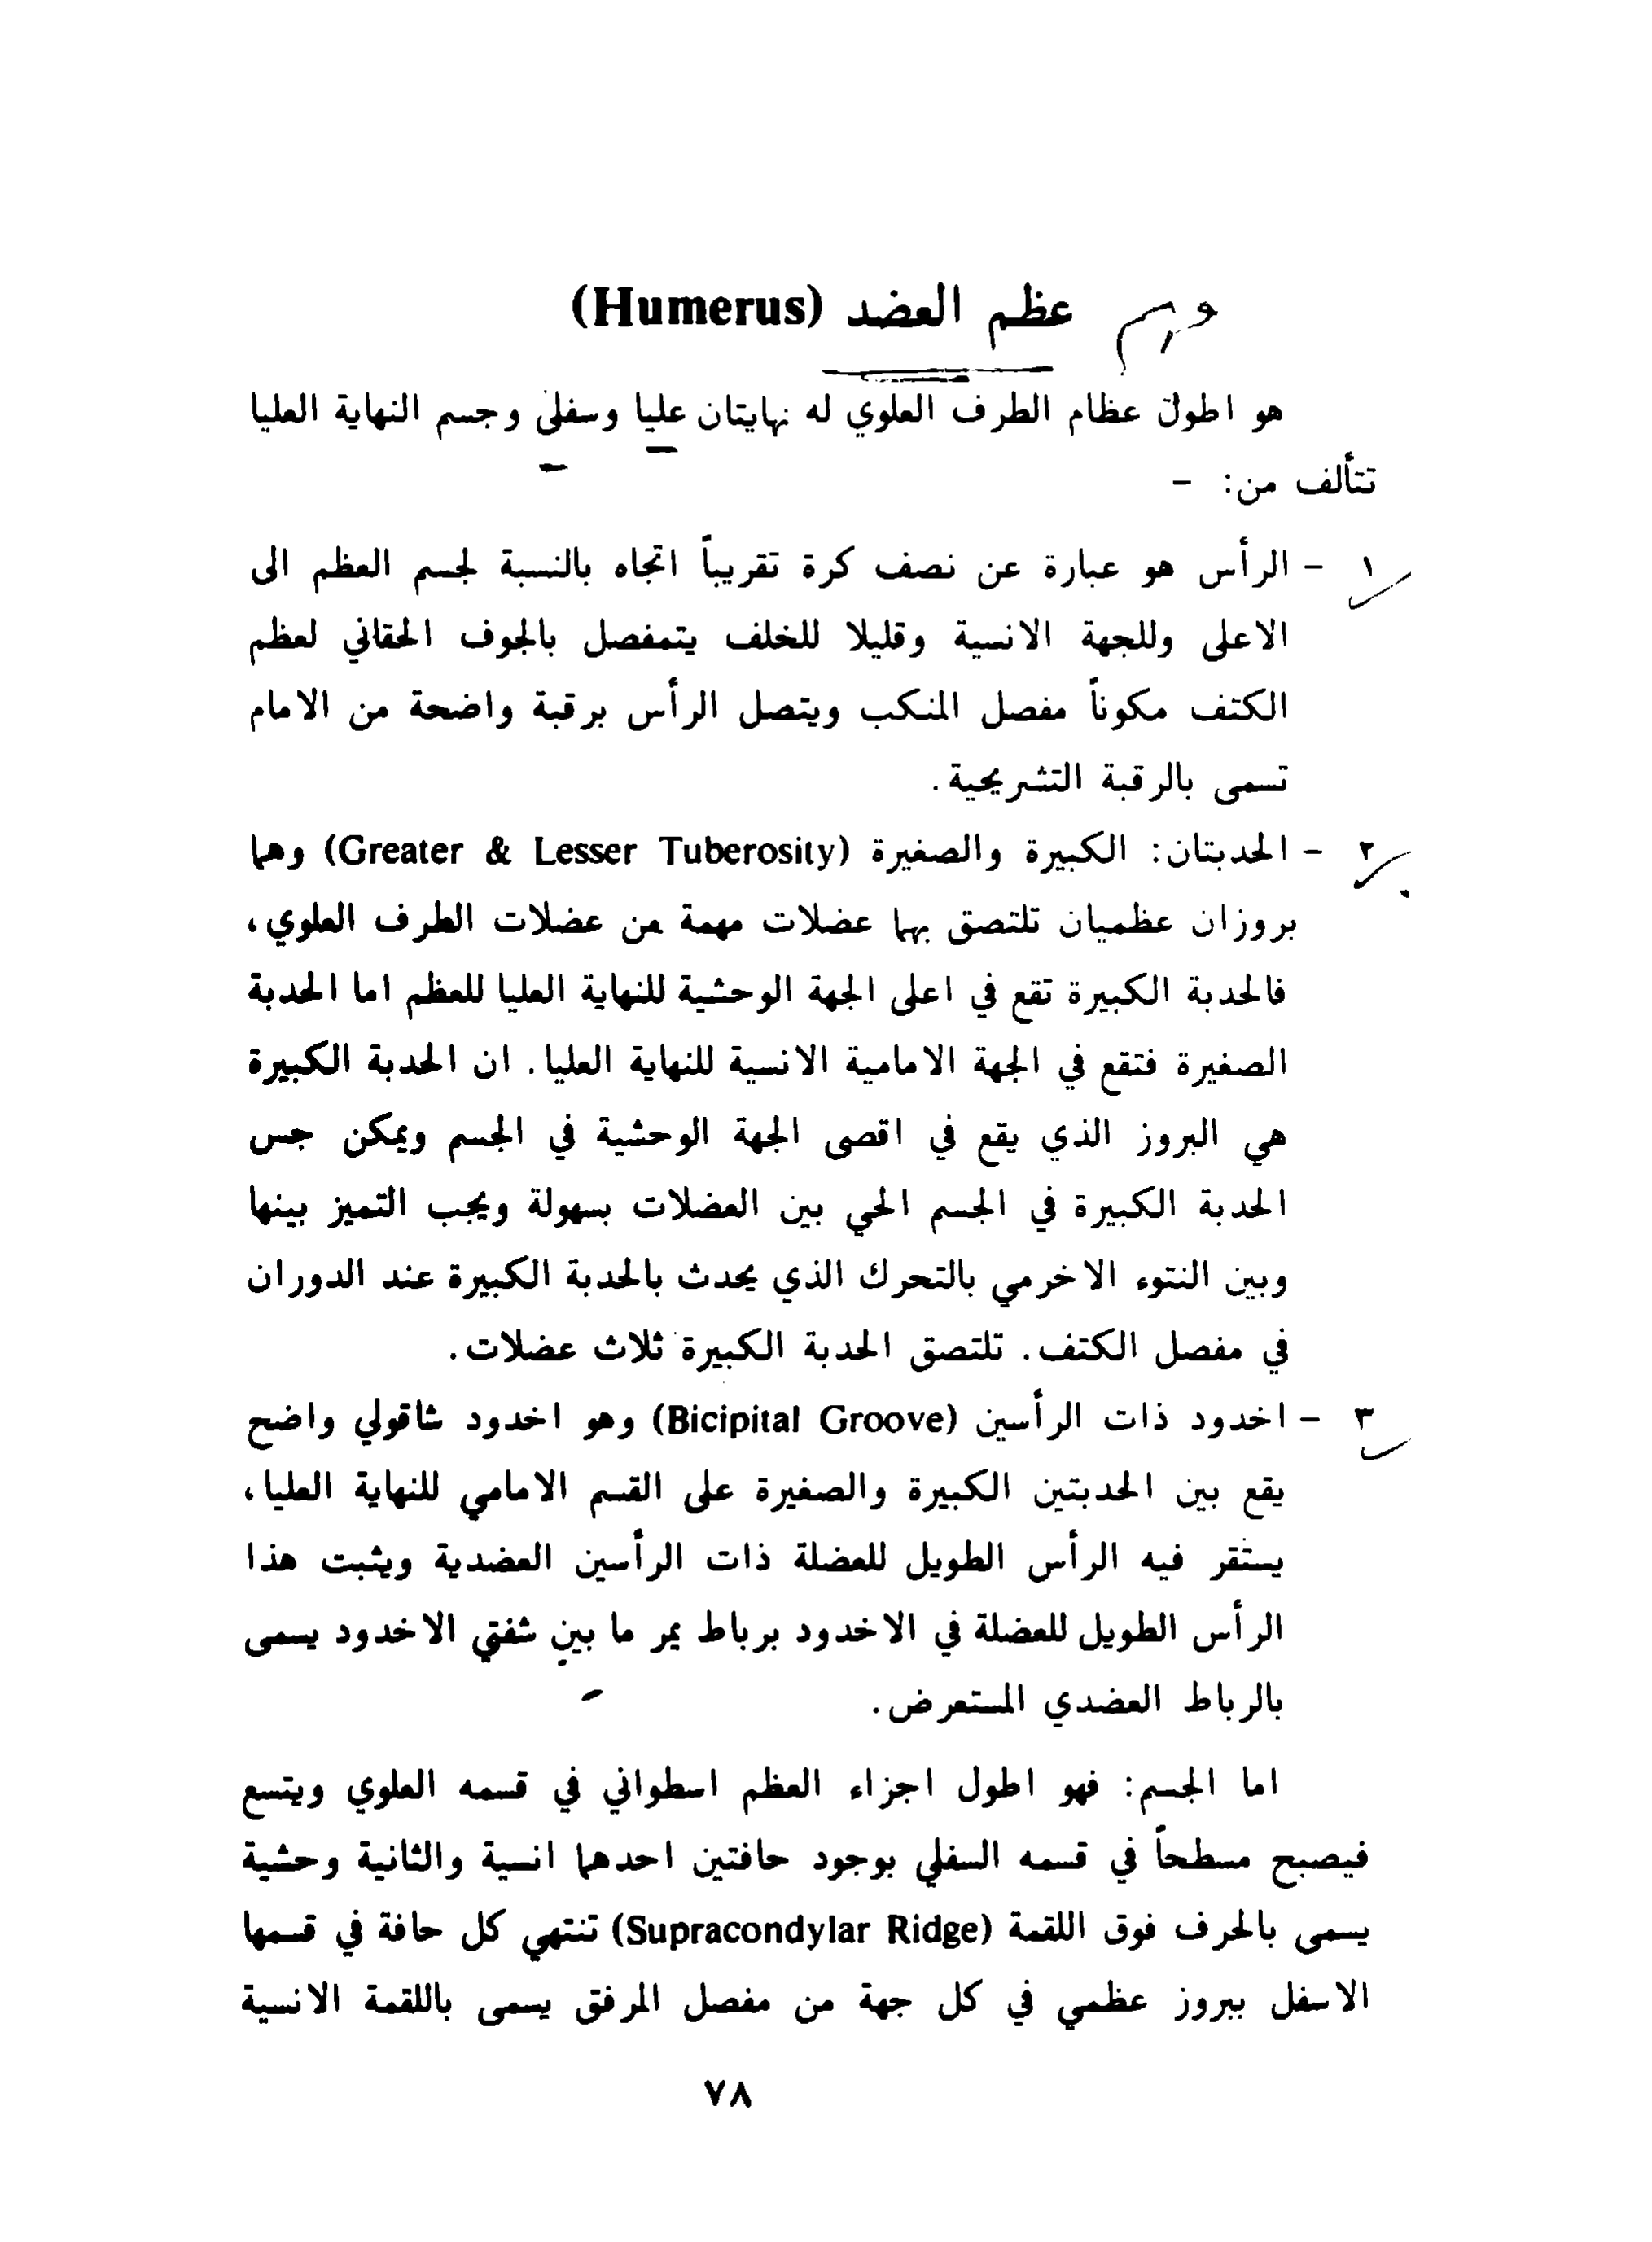 عظم العضد (Humerus)
هو اطول عظام الطرف العلوي له نهايتان عليا وسفلى وجسم النهاية العليا
تتألف من: -
١ - الرأس هو عبارة عن نصف كرة تقريباً اتجاه بالنسبة لجسم العظم الى
الاعلى وللجهة الانسية وقليلا للخلف يتمفصل بالجوف الحقاني لعظم
الكتف مكوناً مفصل المنكب ويتصل الرأس برقبة واضحة من الامام
تسمى بالرقبة التشريحية.
٢ - الحدبتان: الكبيرة والصغيرة (Greater & Lesser Tuberosity) وهما
بروزان عظميان تلتصق بهما عضلات مهمة من عضلات الطرف العلوي،
فالحدبة الكبيرة تقع في اعلى الجهة الوحشية للنهاية العليا للعظم اما الحدبة
الصغيرة فتقع في الجهة الامامية الانسية للنهاية العليا. ان الحدبة الكبيرة
هي البروز الذي يقع في اقصى الجهة الوحشية في الجسم ويمكن جس
الحدبة الكبيرة في الجسم الحي بين العضلات بسهولة ويجب التميز بينها
وبين النتوء الاخرمي بالتحرك الذي يحدث بالحدبة الكبيرة عند الدوران
في مفصل الكتف. تلتصق الحدبة الكبيرة ثلاث عضلات.
٣ - اخدود ذات الرأسين (Bicipital Groove) وهو اخدود شاقولي واضح
يقع بين الحدبتين الكبيرة والصغيرة على القسم الامامي للنهاية العليا،
يستقر فيه الرأس الطويل للعضلة ذات الرأسين العضدية ويثبت هذا
الرأس الطويل للعضلة في الاخدود برباط يمر ما بين شفتي الاخدود يسمى
بالرباط العضدي المستعرض.
اما الجسم: فهو اطول اجزاء العظم اسطواني في قسمه العلوي ويتسع
فيصبح مسطحاً في قسمه السفلي بوجود حافتين احدهما انسية والثانية وحشية
يسمى بالحرف فوق اللقمة (Supracondylar Ridge) تنتهي كل حافة في قسمها
الاسفل ببروز عظمي في كل جهة من مفصل المرفق يسمى باللقمة الانسية
٧٨